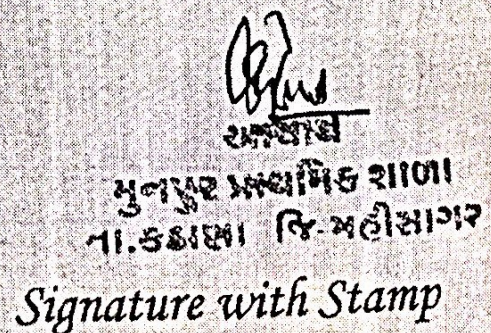 આચાર્ય
મુનપુર પ્રાથમિક શાળા
તા.કડાણા જિ-મહીસાગર
Signature with Stamp